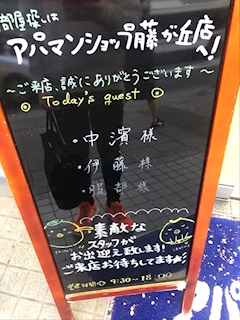 部屋探しは
アパマンショップ藤が丘店
へ!
～ご来店、誠にありがとうございます～
Today's guest
・中濱様
・伊藤様
・服部様
素敵な
スタッフが
お出迎え致します!
ご来店お待ちしてます
営業時間 9:30～18:00